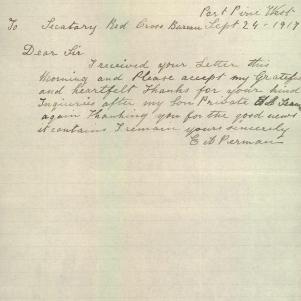 Port Pirie West
To Secatary Red Cross Bureau Sept 24-1917
Dear Sir
I received your Letter this
Morning and Please accept my Gratefu
and heartfelt Thanks for your kind
Inquieries after my Son Private
again Thanking you for the good news
it contains I remain yours sincerely
C A Pierman